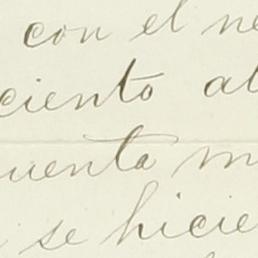 con el ne
ciento al
uenta m
se hicie